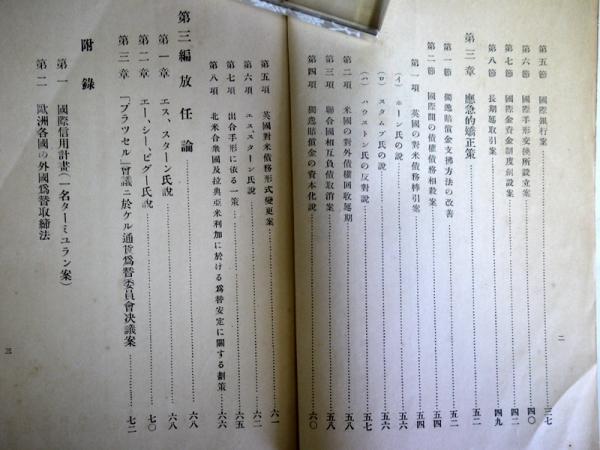 第五節 國際銀行案 三七
第六節 國際手形交換所設立案 四〇
第七節 國際金資金制度創設案 四二
第八節 長期延取引案 四九
第三章 應急的矯正策 五二
第一節 獨逸賠償金支拂方法の改善 五二
第二節 國際間の債權債務相殺案 五四
第一項 英國の對米債務棒引案 五四
(イ) ホーン氏の說 五六
(ロ) スタムプ氏の說 五六
(ハ) ハウストン氏の反對說 五七
第二項 米國の對外債權回收延期 五八
第三項 聯合國相互負債取消案 五八
第四項 獨逸賠償金の資本化說 六〇
二
第五項 英國對米債務形式變更案 六一
第六項 エススターン氏說 六二
第七項 出合手形に依る一策 六五
第八項 北米合衆國及拉典亞米利加に於ける爲替安定に關する劃策 六六
第三編 放任論 六八
第一章 エス、スターン氏說 六八
第二章 エー、シー、ピグー氏說 七〇
第三章 「ブラツセル」會議ニ於ケル通貨爲替委員會決議案 七二
附錄
第一 國際信用計畫(一名ターミユラン案)
第二 歐洲各國の外國爲替取締法
三